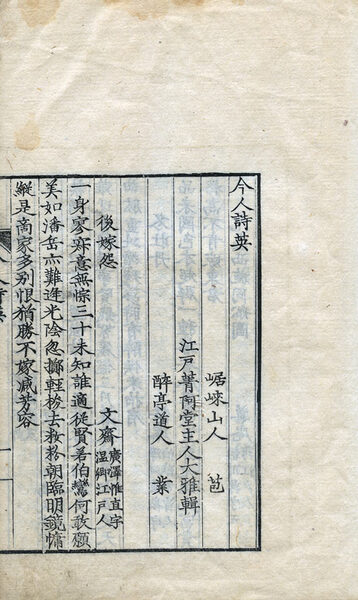 今人詩英
崌崍山人 苞
江戸菁阿堂主人大雅輯
酔亭道人 業
後嫁怨
文齋 廣澤惟直字
温卿江戸人
一身寥意無悰三十未知誰適從賢若伯鸞何敢願
美如潘岳亦難逢光陰忽擲軽梭去妝粉朝臨明鏡慵
縦是商家多別恨猶勝不嫁減芳容